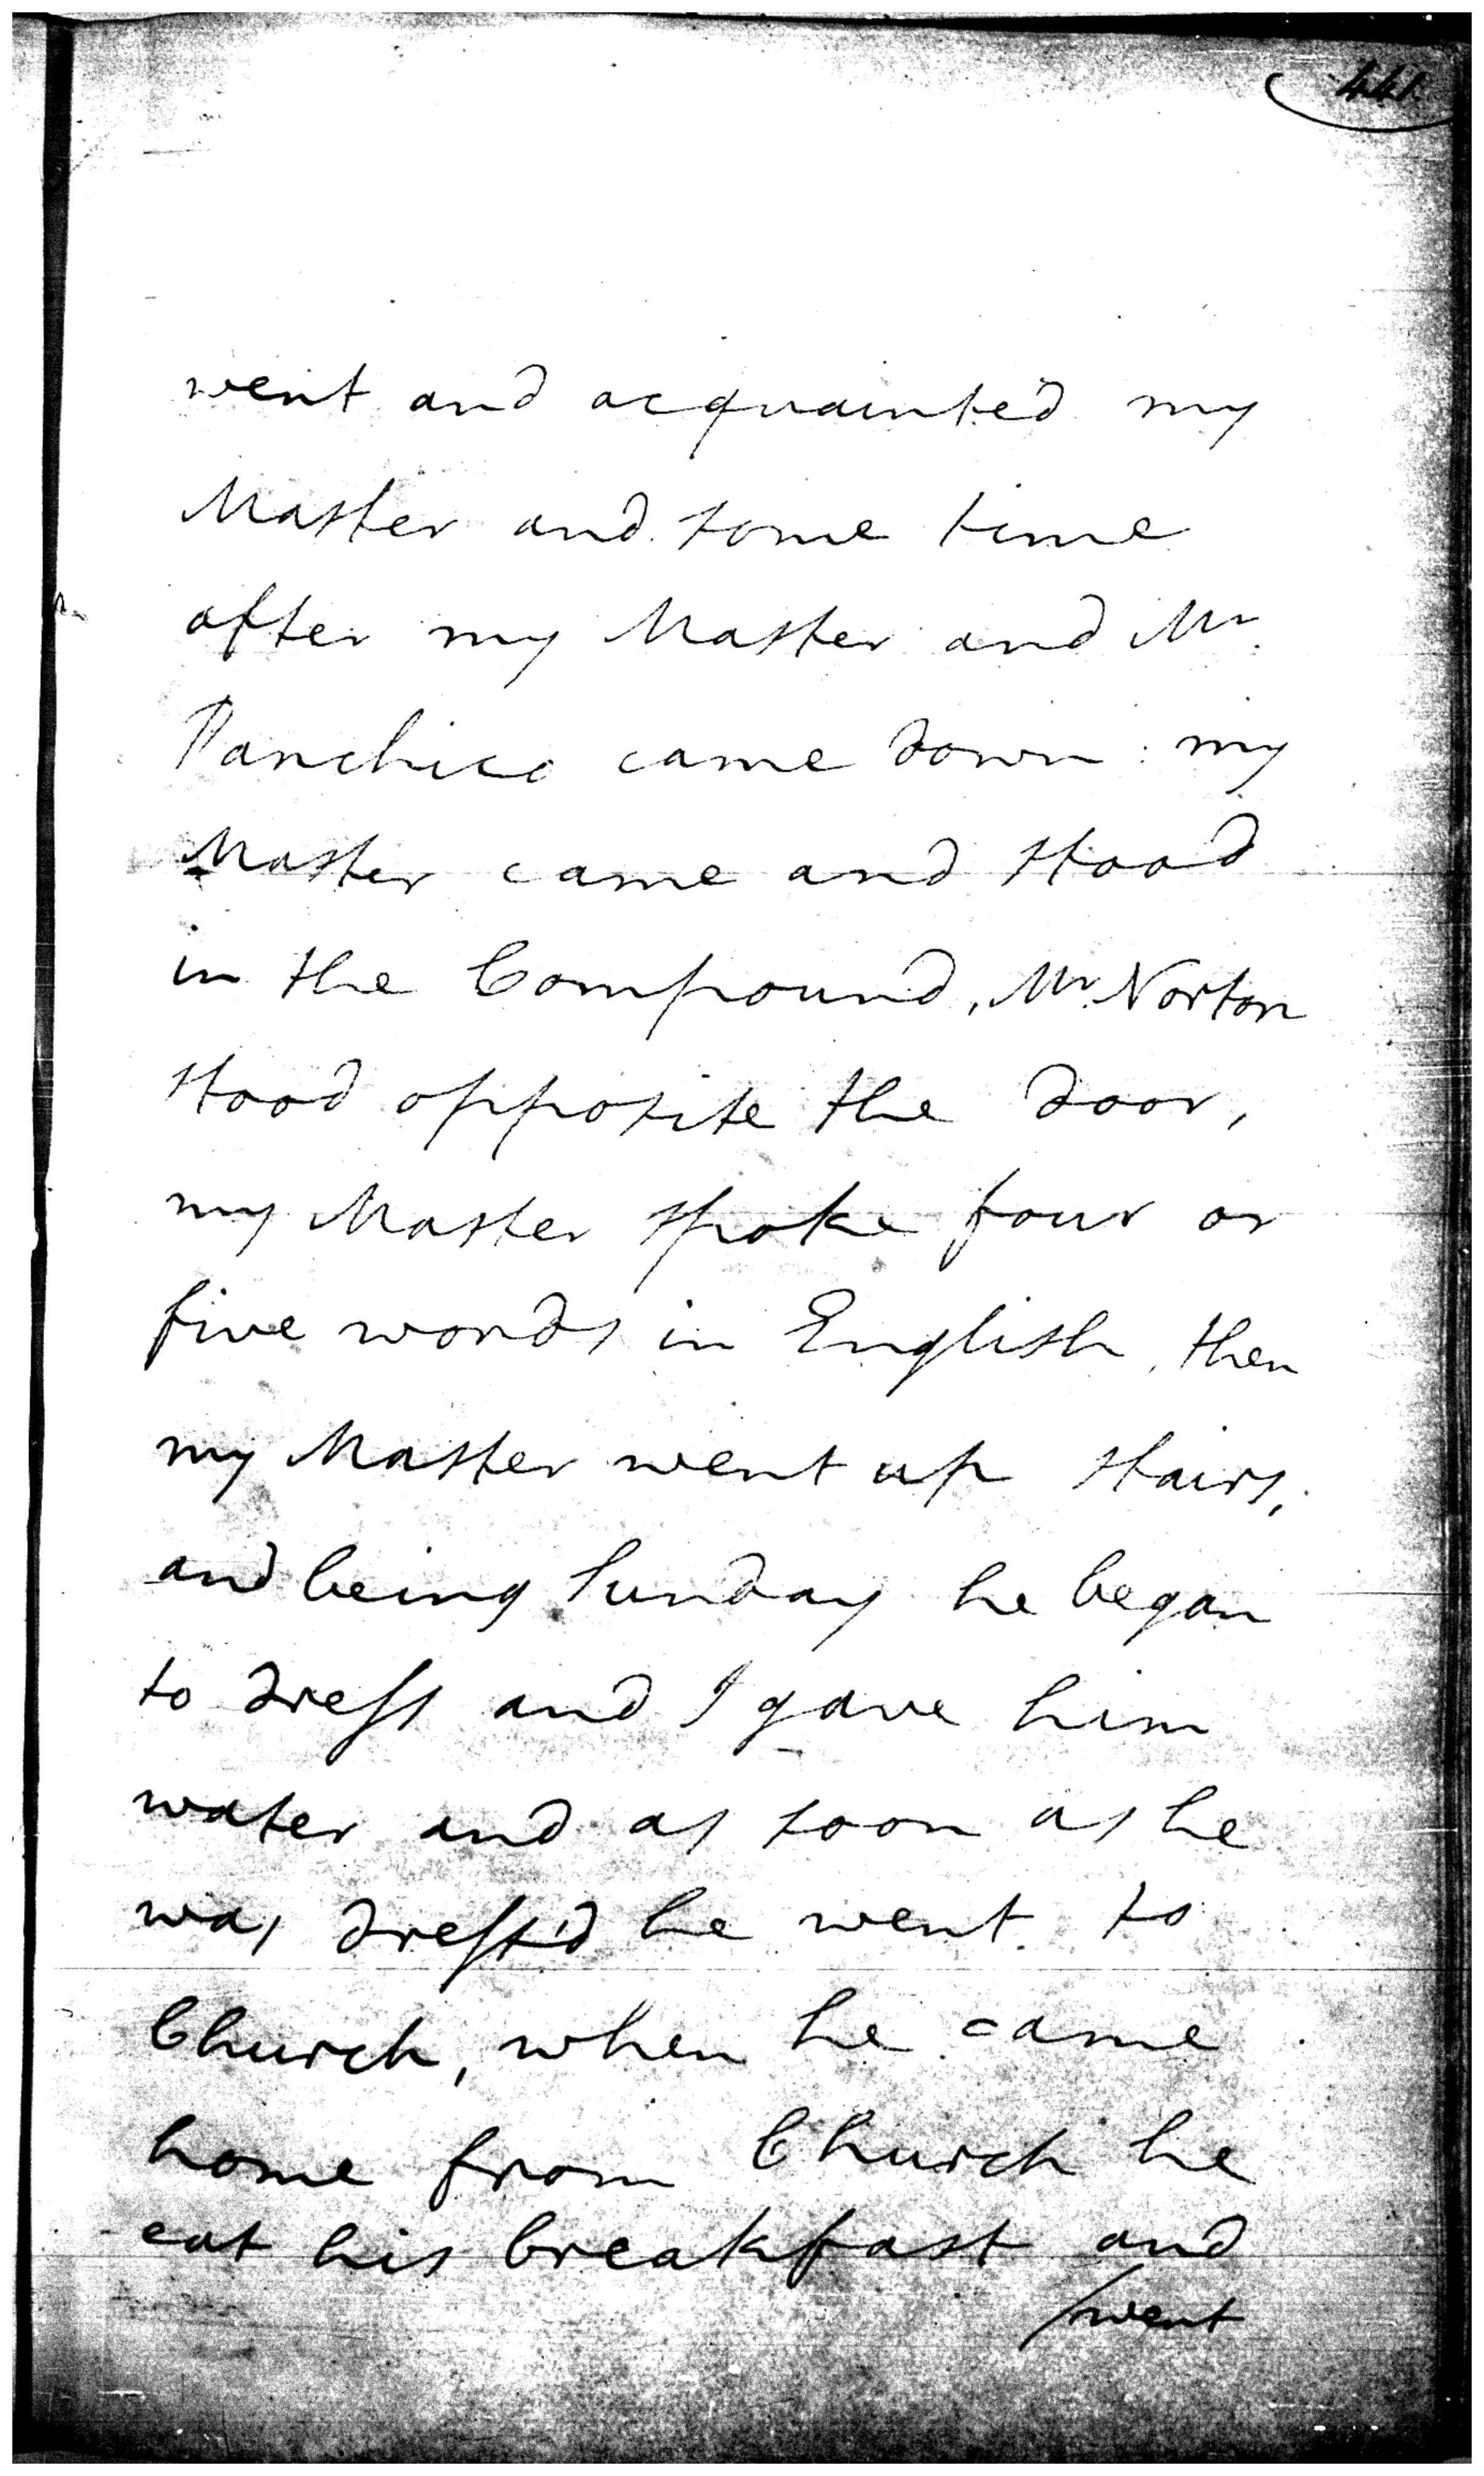 441.
went and acquainted my
Master and some time
after my Master and Mr.
Panchico came down: my
Master came and stood
in the Compound, Mr. Norton
stood opposite the door,
my Master spoke four or
five words in English, then
my Master went up stairs,
and being Sunday he began
to dress and I gave him
water and as soon as he
was dress'd he went to
Church, when he came
home from Church he
eat his breakfast and
/went